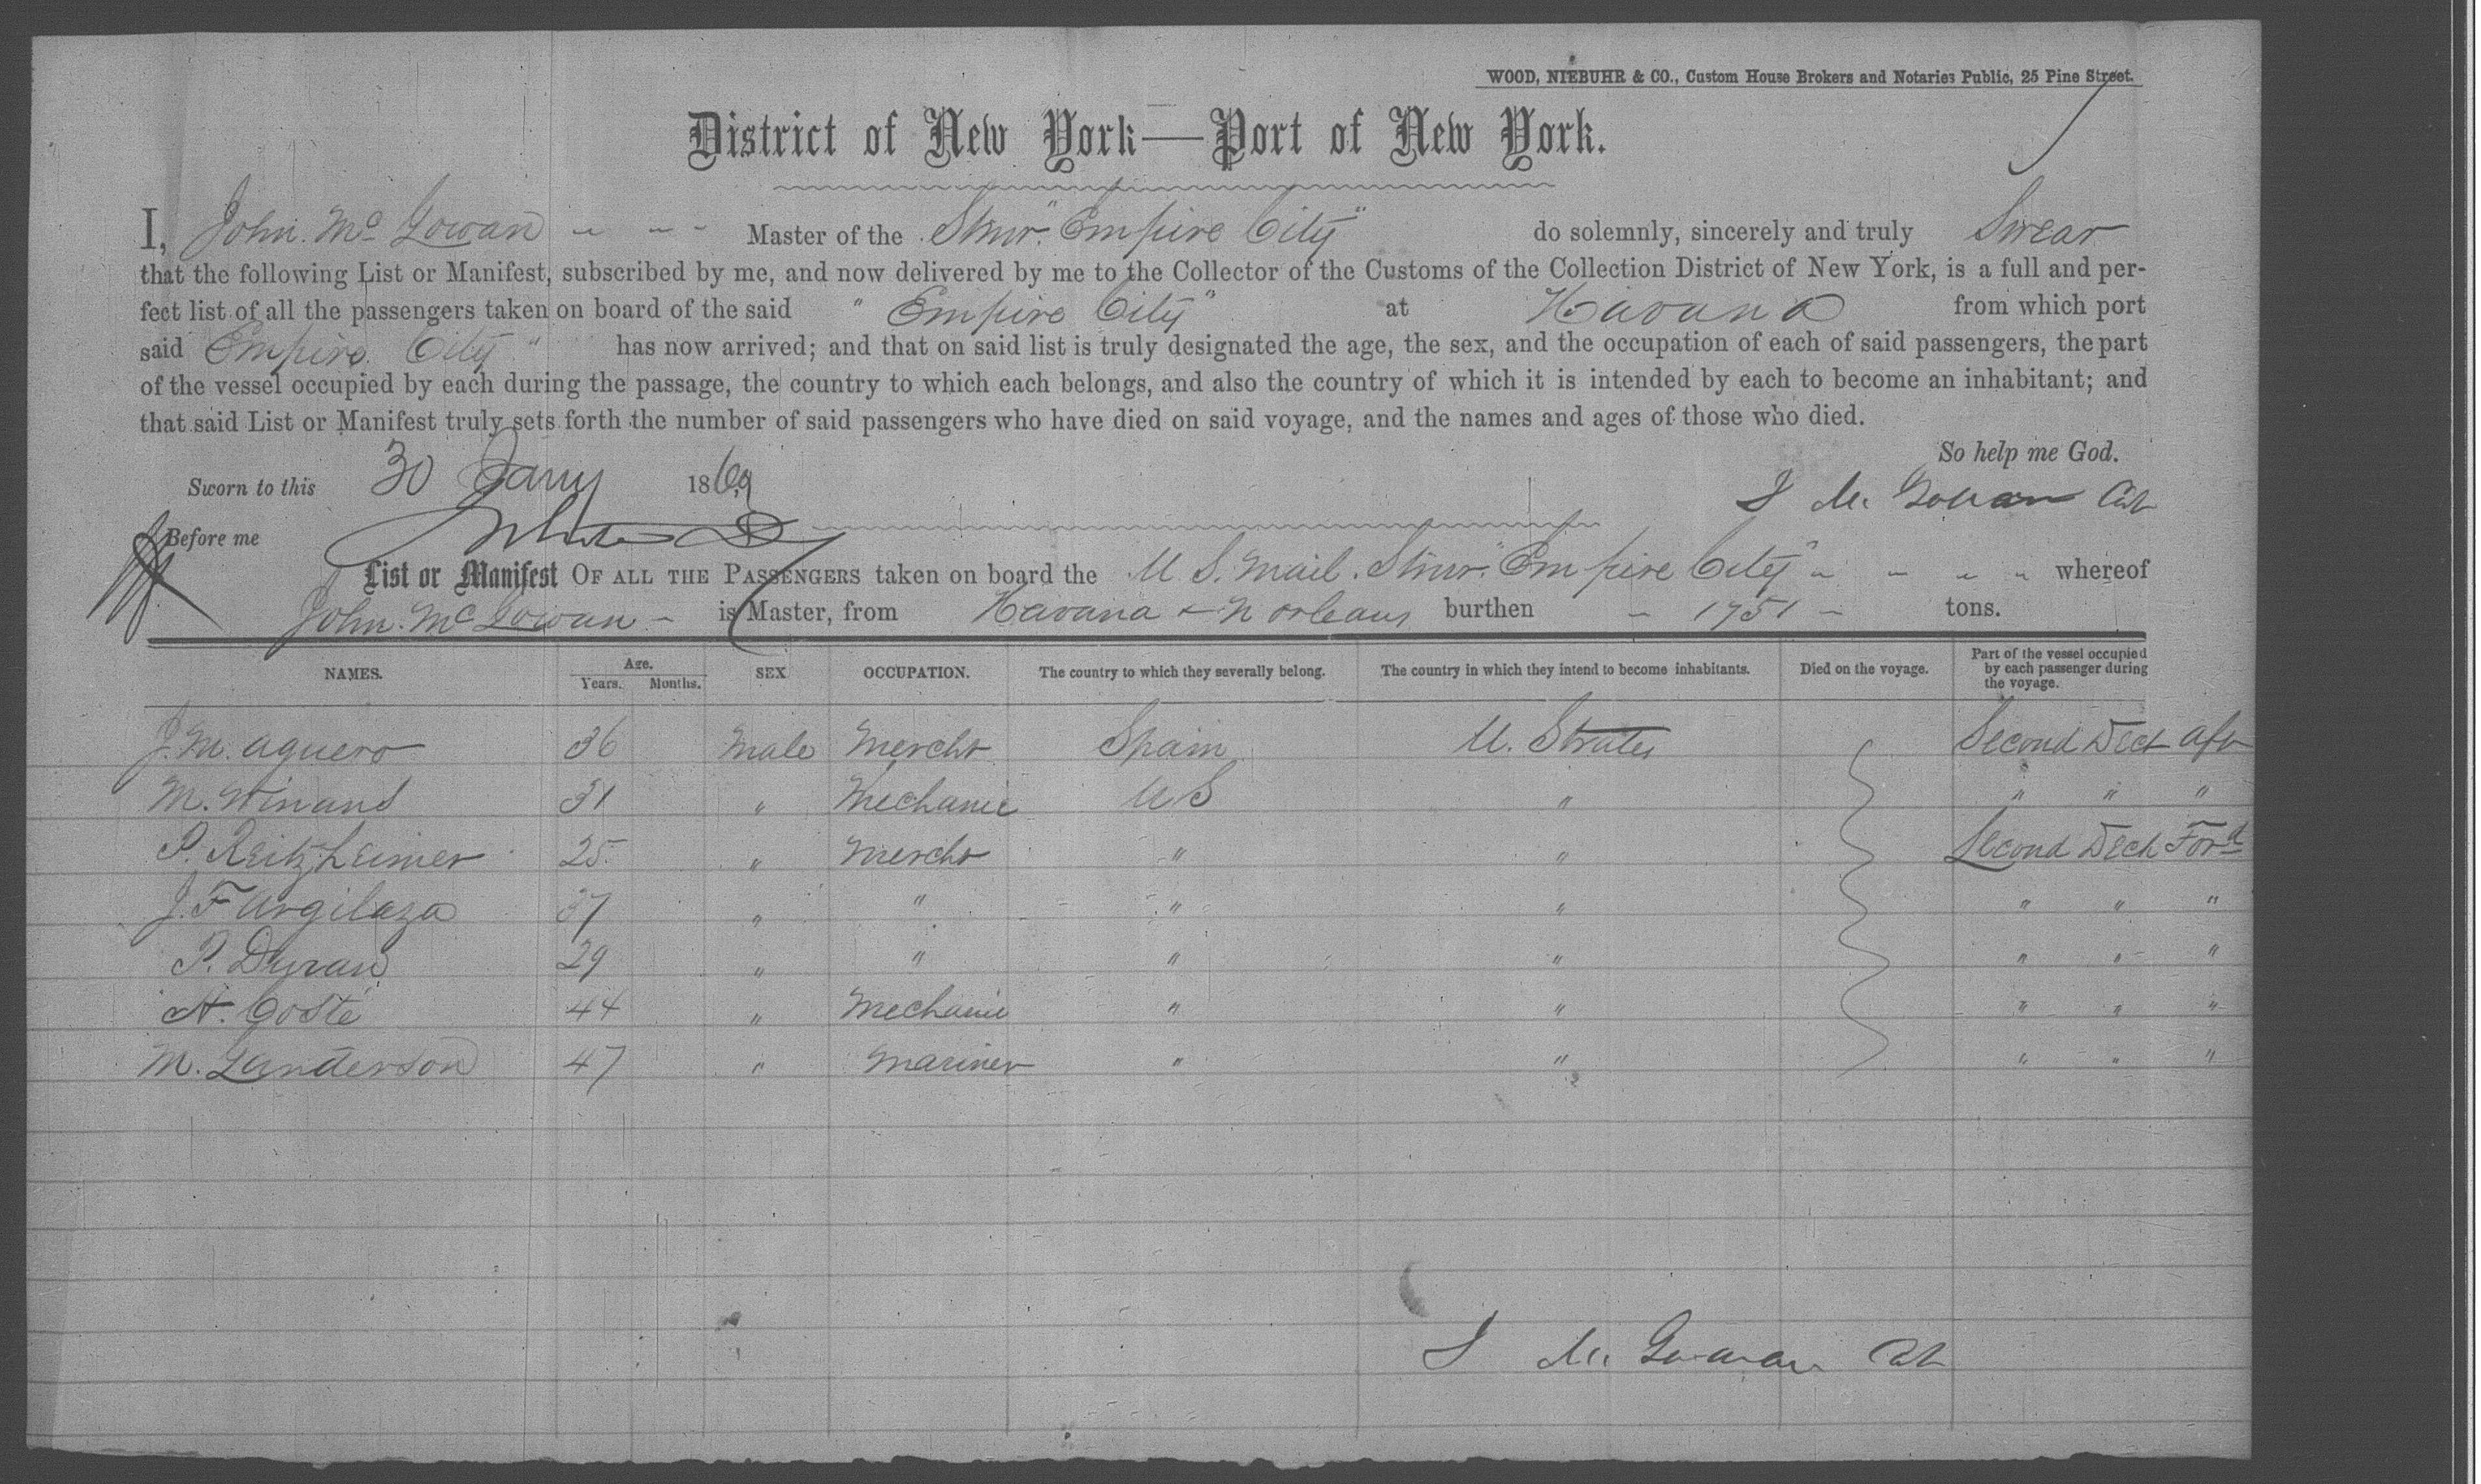 WOOD, NIEBUHR & CO., Custom House Brokers and Notaries Public, 25 Pine Street.
District of New York—Port of New York.
I, John. Mc Gowan Master of the Stmr. "Empire City" do solemnly, sincerely and truly Swear
that the following List or Manifest, subscribed by me, and now delivered by me to the Collector of the Customs of the Collection District of New York, is a full and per-
fect list of all the passengers taken on board of the said "Empire City" at Havana from which port
said Empire City" has now arrived; and that on said list is truly designated the age, the sex, and the occupation of each of said passengers, the part
of the vessel occupied by each during the passage, the country to which each belongs, and also the country of which it is intended by each to become an inhabitant; and
that said List or Manifest truly sets forth the number of said passengers who have died on said voyage, and the names and ages of those who died.
So help me God.
Sworn to this 30 Jany 186
J Mc Gowan
Before me
List or Manifest OF ALL THE PASSENGERS taken on board the U S. Mail. Stmr. "Empire City" " " " " whereof
John. Mc Gowan - is Master, from Havana & N Orleans burthen - 1751 - tons.
NAMES. Age. Years. Months. SEX OCCUPATION. The country to which they severally belong. The country in which they intend to become inhabitants. Died on the voyage. Part of the vessel occupied by each passenger during the voyage.
J. M. Aguero 36 Male Mercht Spain U. States Second Deck Aft
M. Winans 31 " Mechanic U S " " " "
P. Reitzheimer 25 " Mercht " " Second Deck Ford
J. F Argilaza 37 " " " " " " "
P. Duran 29 " " " " " " "
A. Coste 44 " Mechanic " " " " "
M. Sanderson 47 " Mariner " " " " "
J Mc Gowan